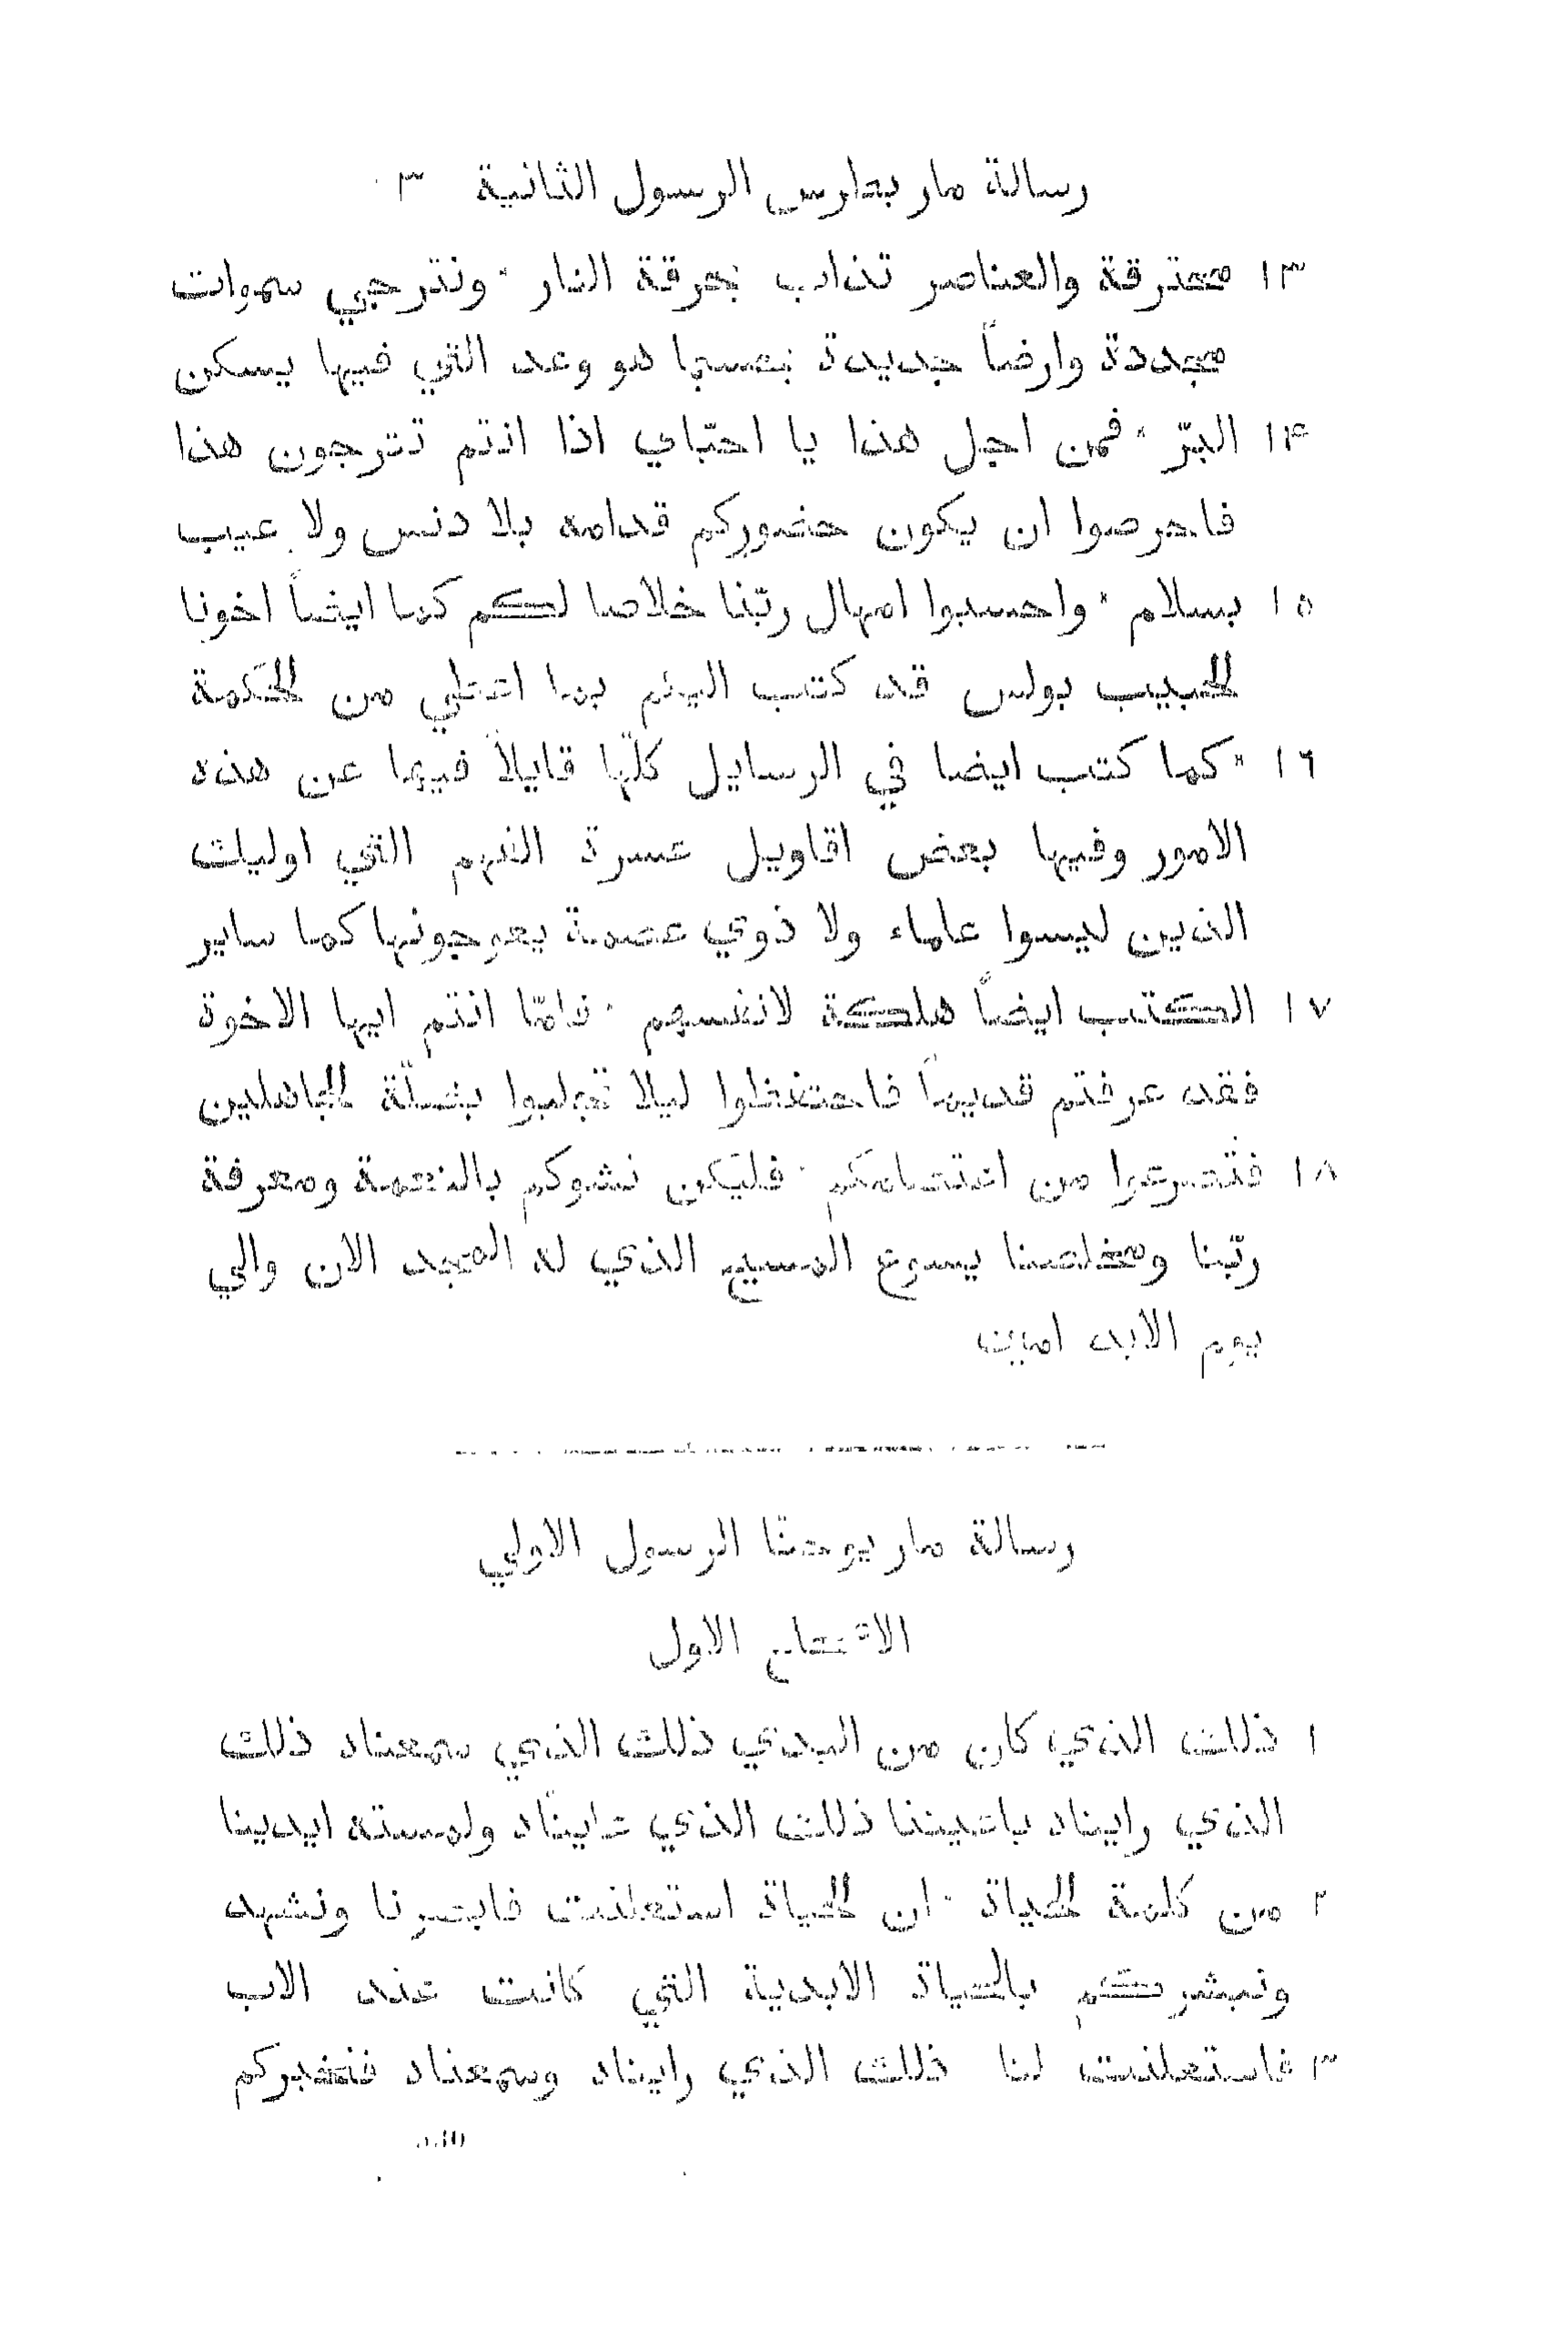 رسالة مار بطرس الرسول الثانية ٣
١٣ محترقة والعناصر تذاب بحرقة النار * ونترجي سموات
مجددة وارضاً جديدة بحسبما هو وعد التي فيها يسكن
١۴ البرّ * فمن اجل هذا يا احبّاي اذا انتم تترجون هذا
فاحرصوا ان يكون حضوركم قدامه بلا دنس ولا عيب
١٥ بسلام * واحسبوا امهال ربّنا خلاصا لكم كما ايضاً اخونا
الحبيب بولس قد كتب اليكم بما اعطي من الحكمة
١٦ * كما كتب ايضا في الرسايل كلّها قايلاً فيها عن هذه
الامور وفيها بعض اقاويل عسرة الفهم التي اوليك
الذين ليسوا علماء ولا ذوي عصمة يعوجونها كما ساير
١٧ الكتب ايضاً هلكة لانفسهم * فامّا انتم ايها الاخوة
فقد عرفتم قديماً فاحتفظوا ليلا تجلبوا بضلّة الجاهلين
١٨ فتصرعوا من اعتصامكم * فليكن نشوكم بالنعمة ومعرفة
ربّنا ومخلصنا يسوع المسيح الذي له المجد الان والي
يوم الابد امين
رسالة مار يوحنّا الرسول الاولي
الافتتاح الاول
١ ذلك الذي كان من البدي ذلك الذي سمعناه ذلك
الذي رايناه باعيننا ذلك الذي عايناه ولمسته ايدينا
٢ من كلمة الحياة * ان الحياة استعلنت فابصرنا ونشهد
ونبشركم بالحياة الابدية التي كانت عند الاب
٣ فاستعلنت لنا ذلك الذي رايناه وسمعناه فنخبركم